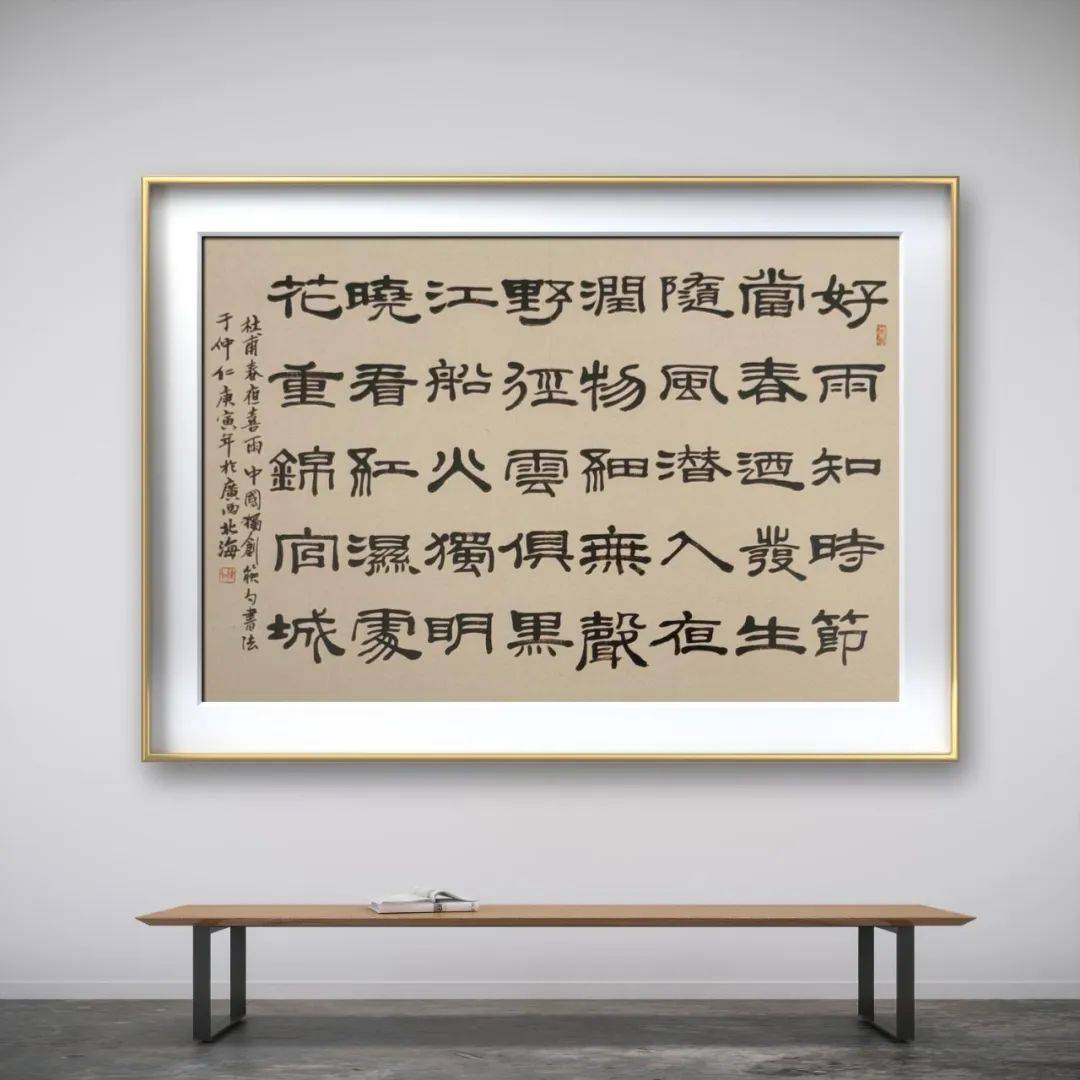 好雨知時節
當春迺發生
隨風潜入夜
潤物細無聲
野徑雲俱黑
江船火獨明
曉看紅濕處
花重錦官城
杜甫春夜喜雨 中國獨創筷勺書法
于仲仁庚寅年於廣西北海